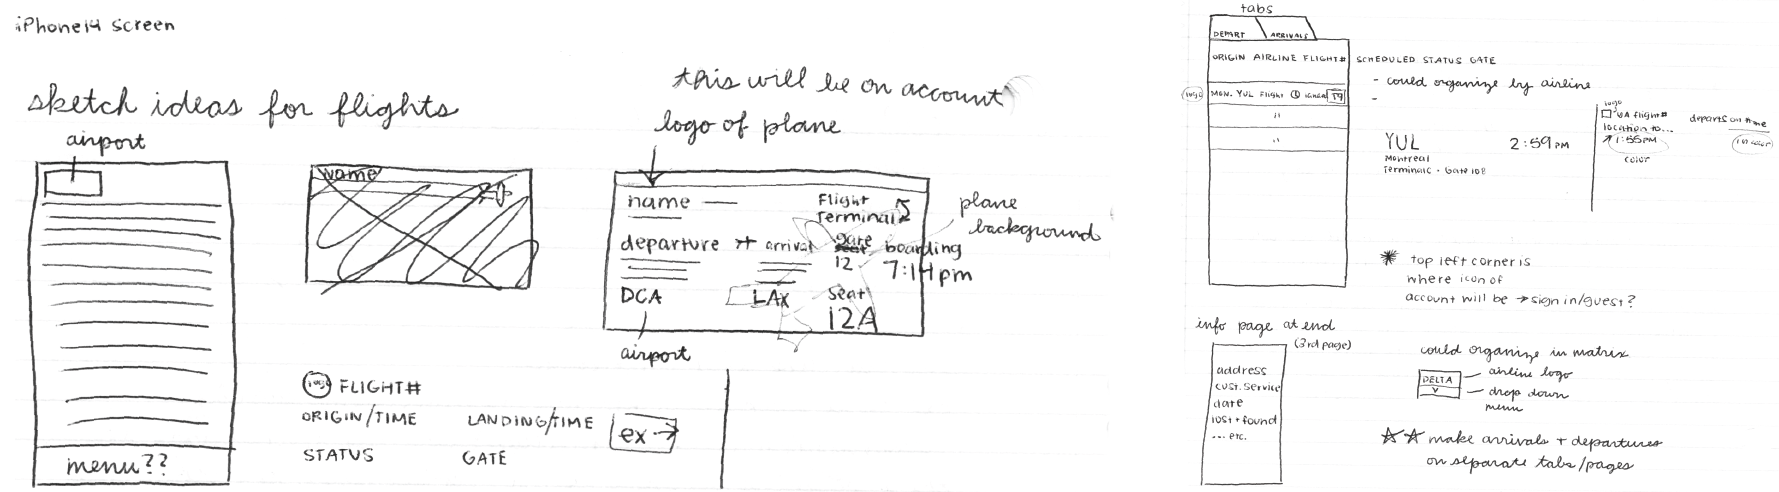 iPhone14 screen
sketch ideas for flights
airport
menu??
name
this will be on account
logo of plane
name
Flight
Terminal 2
departure
arrival
gate
seat
12
boarding
7:14pm
DCA
LAX
Seat
12A
airport
plane
background
logo FLIGHT#
ORIGIN/TIME LANDING/TIME
STATUS GATE
ex →
tabs
DEPART ARRIVALS
ORIGIN AIRLINE FLIGHT# SCHEDULED STATUS GATE
logo
MON. YUL Flight
19
"
"
- could organize by airline
-
YUL 2:59PM
Montreal
Terminal C · Gate 102
logo
UA flight#
location to...
1:55PM
color
departs on time
(in color)
* top left corner is
where icon of
account will be → sign in/guest?
info page at end
(3rd page)
address
cust. service
date
lost + found
... etc.
could organize in matrix
DELTA
airline logo
drop down
menu
☆☆ make arrivals + departures
on separate tabs/pages